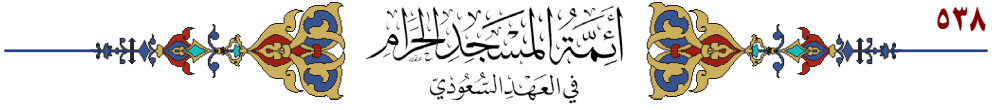 ٥٣٨
أَئِمَّةُ المَسْجِدِ الحَرَامِ
فِي العَهْدِ السُّعُودِيّ